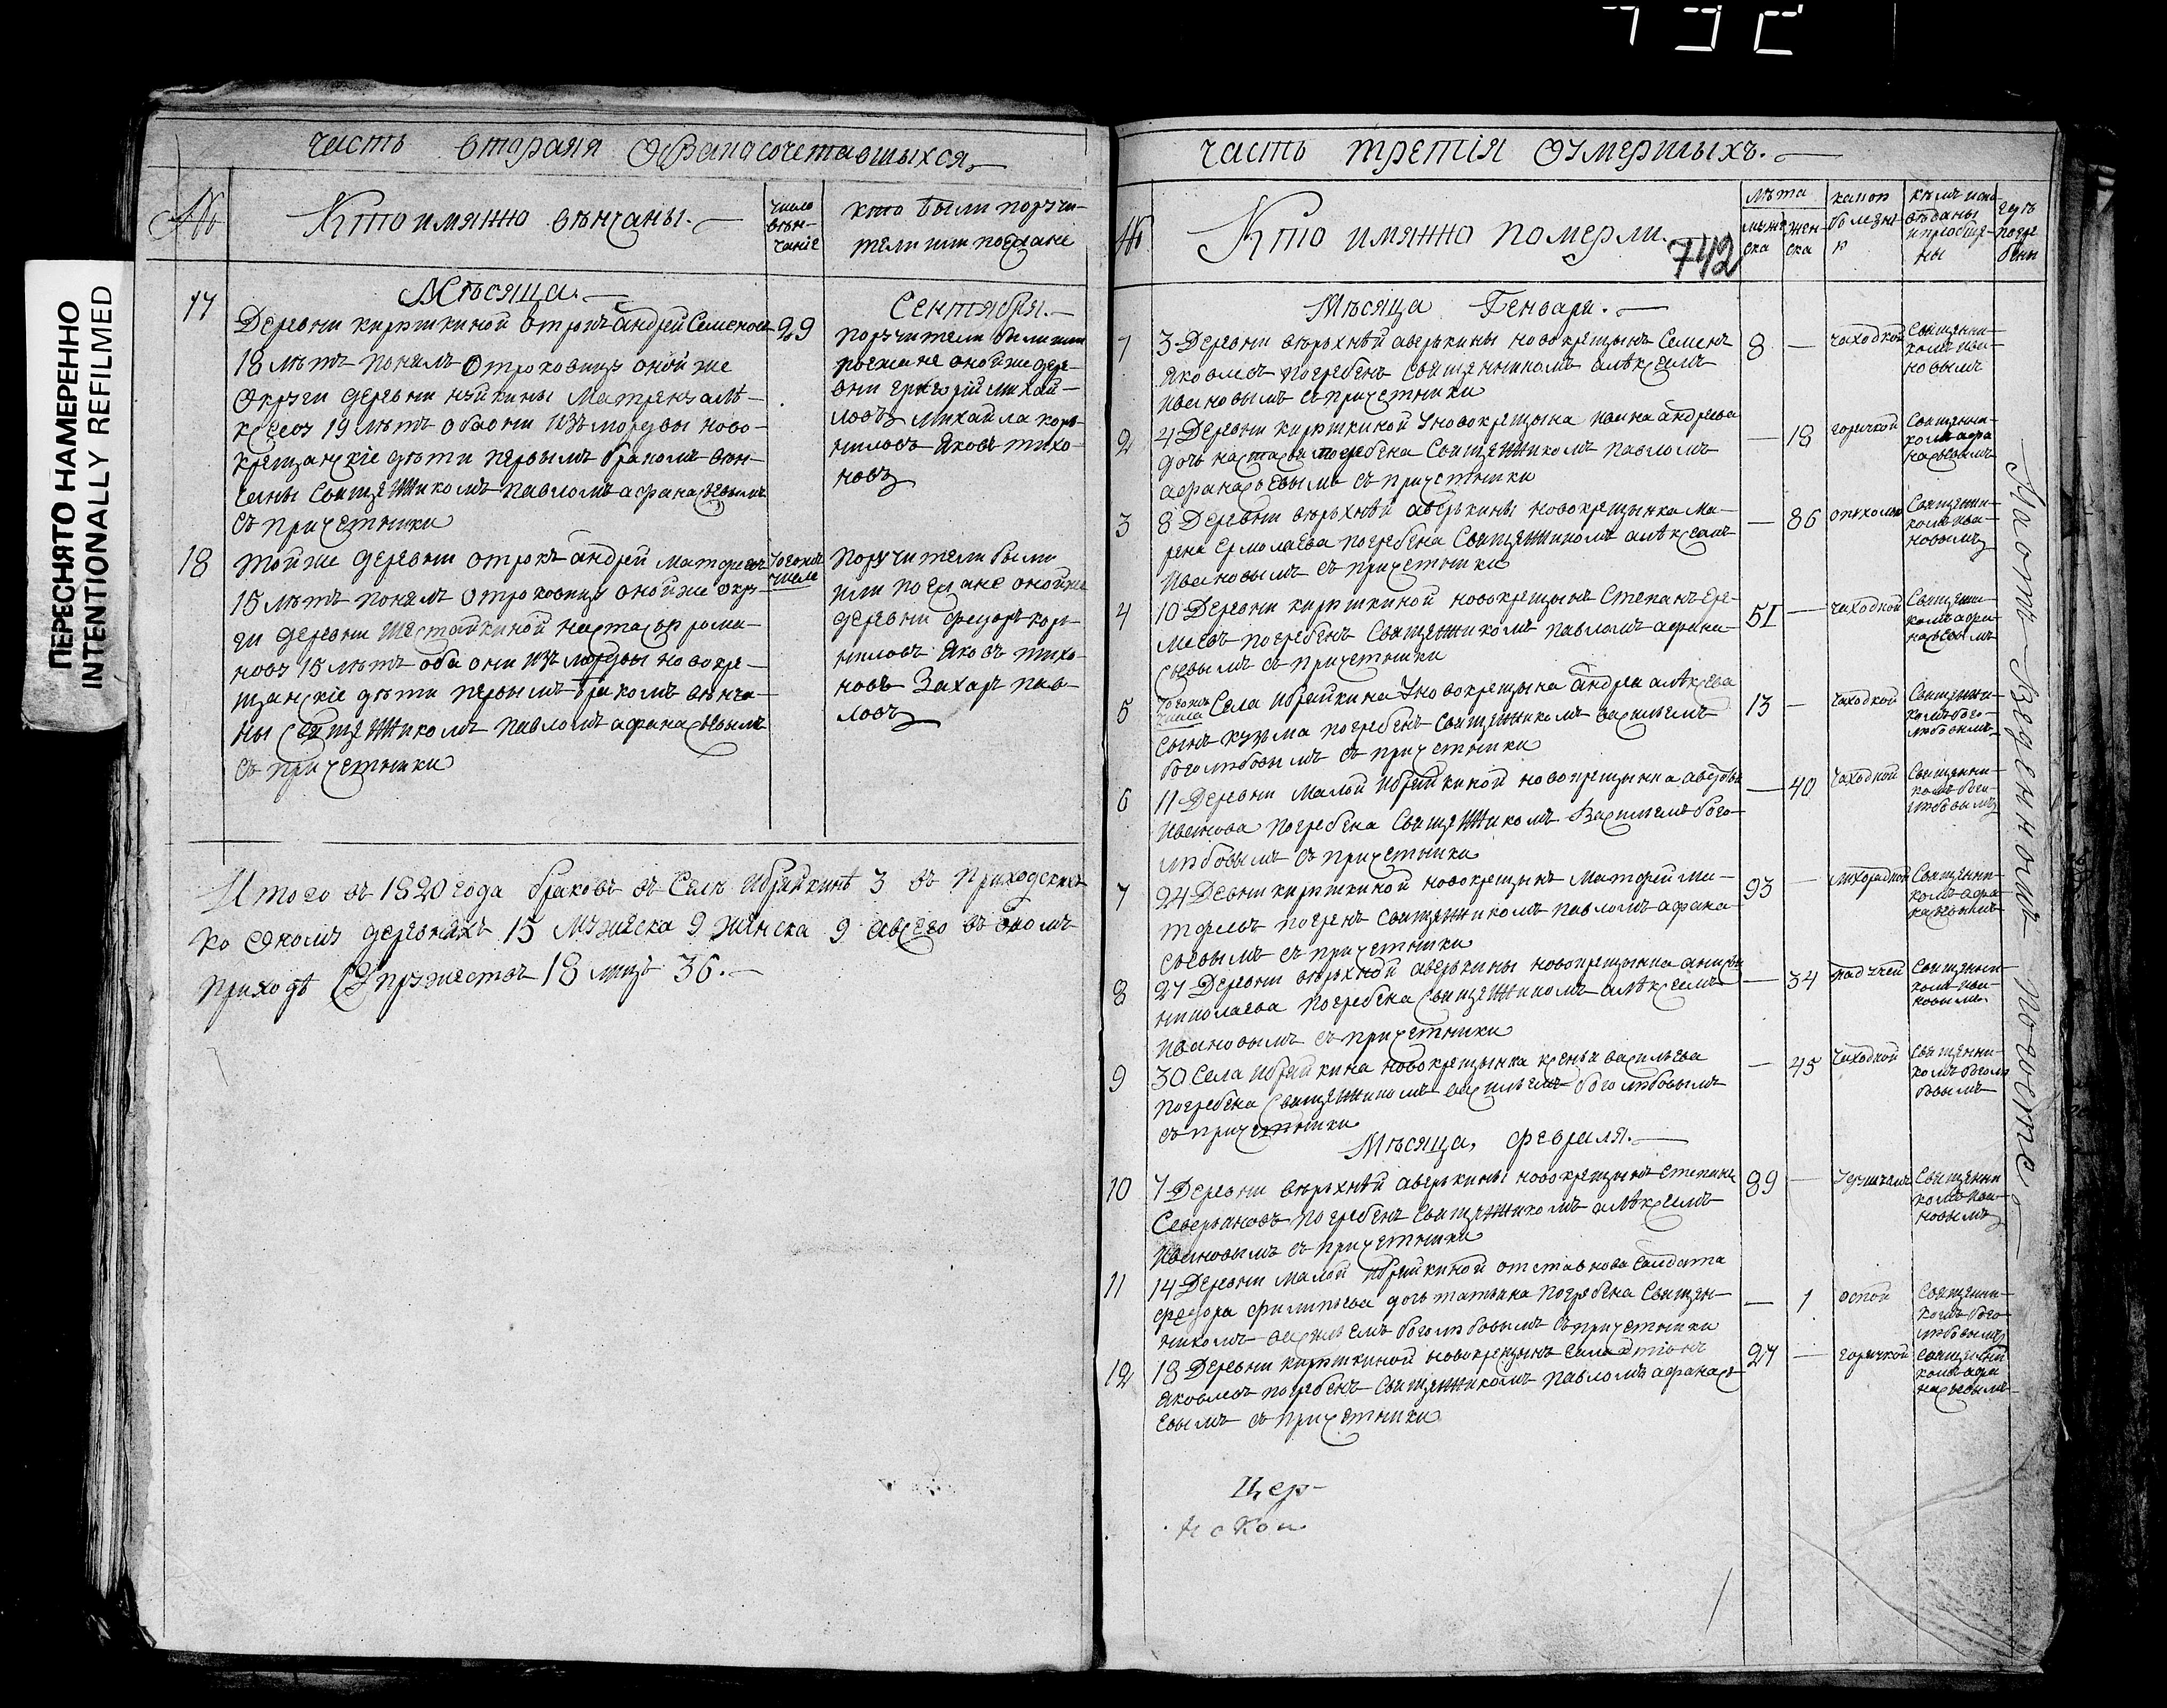 ПЕРЕСНЯТО НАМЕРЕННО
INTENTIONALLY REFILMED
часть вторая О Бракосочетавшыхся
№
Кто имянно вѣнчаны.
число вѣн-
чаніе
кто были поручи-
тели или поезжане
Мѣсяца
Сентября.
17
Деревни кирюшкиной отрокъ андрей Семеновъ
18 лѣтъ понялъ Отроковицу оной же
Округи деревни Матрену алѣ-
ксееву 19 лѣтъ оба они изъ мордвы ново-
крещанскіе дѣти первымъ бракомъ вѣн-
чаны Священникомъ павломъ афанасьевымъ
съ причетники
29
поручители были или
поезжане оной же дере-
вни григорій михай-
ловъ михайла корни-
ловъ яковъ тихо-
новъ
18
той же деревни отрокъ андрей матфеевъ
15 лѣтъ понялъ отроковицу оной же окру-
ги деревни шесталкиной настасью рома-
нову 15 лѣтъ оба они изъ мордвы новокре-
щанскіе дѣти первымъ бракомъ вѣнча-
ны Священникомъ павломъ афанасьевымъ
съ причетники
тогожъ
числа
поручители были
или поезжане оной же
деревни федоръ кор-
ниловъ яковъ тихо-
новъ Захаръ пав-
ловъ
Итого въ 1820 года браковъ въ Селе ибряйкинѣ 3 въ приходскихъ
ко оному деревняхъ 15 мужеска 9 женска 9 а всего въ ономъ
приходѣ Супружествъ 18 лицъ 36.
часть третія О умершыхъ.
№
Кто имянно померли.
742
лѣта
муже-
ска
жен-
ска
какою
болезнi-
ю
кѣмъ испо-
вѣданы
и приобще-
ны
гдѣ
погре
бены
Мѣсяца Генваря.
1
3 Деревни верьхнѣй аверькины новокрещынъ Семенъ
яковлевъ погребенъ Священникомъ алѣксеемъ
ивановымъ съ причетники
8
—
чахоткой
Священни-
комъ ива-
новымъ
2
4 Деревни кирюшкиной у новокрещына ивана андреева
дочь настасья погребена Священникомъ павломъ
афанасьевымъ съ причетники
—
18
горячкой
Священни-
комъ афа
насьевымъ
3
8 Деревни верьхнѣй аверькины новокрещынка ма-
рена Ермолаева погребена Священникомъ алѣксеемъ
ивановымъ съ причетники
—
86
опухолью
Священни-
комъ ива-
новымъ
4
10 Деревни кирюшкиной новокрещынъ Степанъ Ере-
меевъ погребенъ Священникомъ павломъ афана-
сьевымъ съ причетники
51
—
чахоткой
Священни-
комъ афа-
насьевымъ
5
тогожъ
числа
Села ибряйкина у новокрещына андрея алѣксеева
Сынъ кузма погребенъ Священникомъ васильемъ
боголюбовымъ съ причетники
13
—
чахоткой
Священни-
комъ бого-
любовымъ
6
11 Деревни малой ибряйкиной новокрещынка авдотья
иванова погребена Священникомъ Васильемъ бого-
любовымъ съ причетники
—
40
чахоткой
Священни-
комъ бого-
любовымъ
7
24 Девни кирюшкиной новокрещынъ матфей ма-
тфеевъ погренъ Священникомъ павломъ афана-
сьевымъ съ причетники
93
—
лихорадкой
Священни-
комъ афа-
насьевымъ
8
27 Деревни верьхнѣй аверькины новокрещынка анисья
николаева погребена Священникомъ алѣксеемъ
ивановымъ съ причетники
—
34
падучей
Священни-
комъ ива-
новымъ
9
30 Села ибряйкина новокрещынка ксенья васильева
погребена Священникомъ васильемъ боголюбовымъ
съ причетники
—
45
чахоткой
Священни-
комъ боголю
бовымъ
Мѣсяца, февраля.
10
7 Деревни верьхнѣй аверькины новокрещынъ степанъ
Северьяновъ погребенъ Священникомъ алѣксеемъ
ивановымъ съ причетники
89
—
Священни
комъ ива-
новымъ
11
14 Деревни малой ибряйкиной отставнова Салдата
федора филипьева дочь татьяна погребена Священ-
никомъ васильемъ боголюбовымъ съ причетники
—
1
оспой
Священни-
комъ бого-
любовымъ
12
18 Деревни кирюшкиной новокрещынъ
яковлевъ погребенъ Священникомъ павломъ афанась-
евымъ съ причетники
27
—
горячкой
Священни
комъ афа
насьевымъ
На отъ-Веденномъ погосте.
Цер-